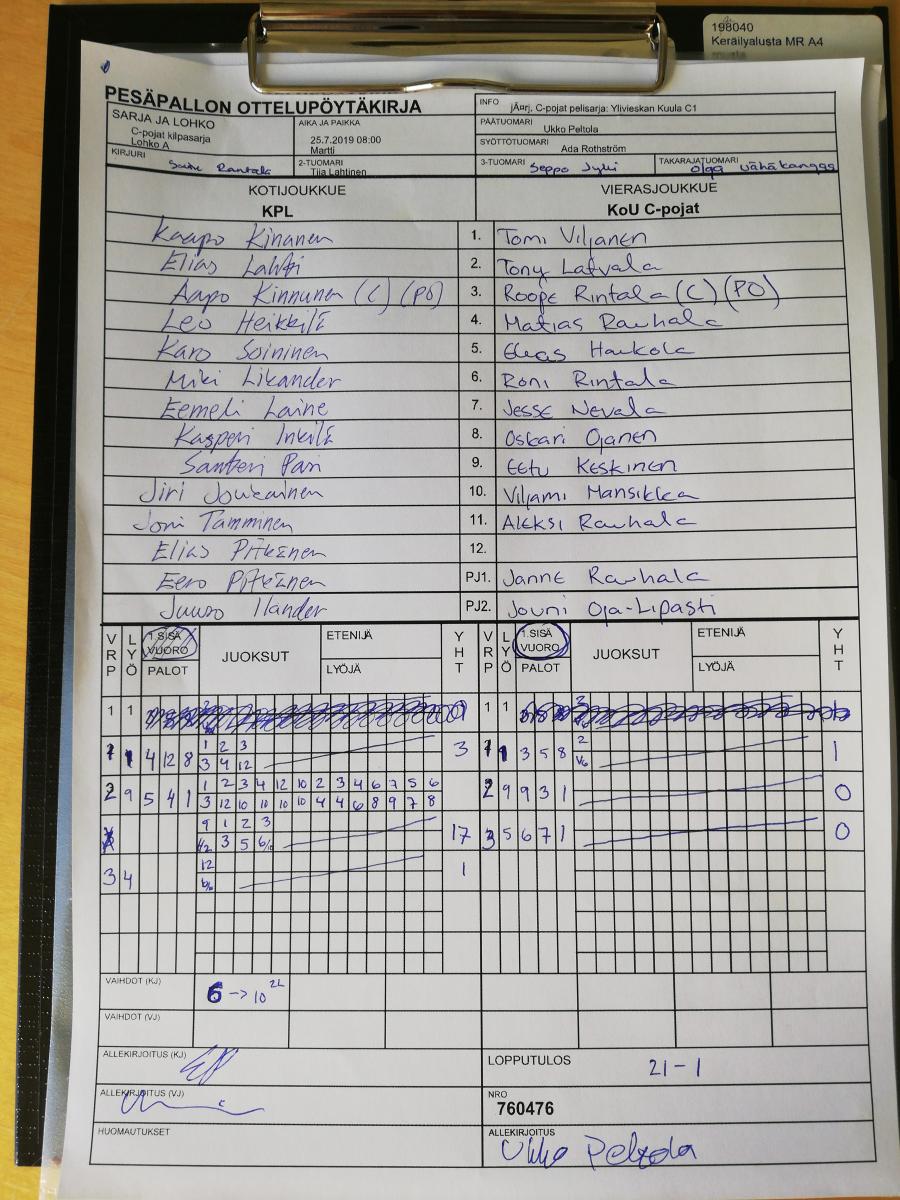 198040
Keräilyalusta MR A4
PESÄPALLON OTTELUPÖYTÄKIRJA
SARJA JA LOHKO
C-pojat kilpasarja
Lohko A
AIKA JA PAIKKA
25.7.2019 08:00
Martti
INFO jÄœrj. C-pojat pelisarja: Ylivieskan Kuula C1
PÄÄTUOMARI Ukko Peltola
SYÖTTÖTUOMARI Ada Rothström
KIRJURI Rantala
2-TUOMARI Tiia Lahtinen
3-TUOMARI Seppo
TAKARAJATUOMARI Olga Vähäkangas
KOTIJOUKKUE VIERASJOUKKUE
KPL KoU C-pojat
Kaapo Kinanen 1. Tomi Viljanen
Elias Lahti 2. Tony Latvala
Aapo Kinnunen (C) (PO) 3. Roope Rintala (C) (PO)
Leo Heikkilä 4. Matias Rauhala
Karo Soininen 5. Elias Haukola
Miki Likander 6. Roni Rintala
Eemeli Laine 7. Jesse Nevala
Kasperi Inkilä 8. Oskari Ojanen
Santeri Pari 9. Eetu Keskinen
Jiri Joukainen 10. Viljami Mansikka
Joni Tamminen 11. Aleksi Rauhala
Elias Pitkänen 12.
Eero Pitkänen PJ1. Janne Rauhala
Juuso Ilander PJ2. Jouni Oja-Lipasti
VRP LYÖ 1.SISÄ VUORO PALOT JUOKSUT ETENIJÄ LYÖJÄ YHT VRP LYÖ 1.SISÄ VUORO PALOT JUOKSUT ETENIJÄ LYÖJÄ YHT
1 1 1 1
1 1 4 12 8 1 2 3 3 1 1 3 5 8 2 1
3 4 12 V6
2 9 5 4 1 1 2 3 4 12 10 2 3 4 6 7 5 6 2 9 9 3 1 0
3 12 10 10 10 10 4 4 6 8 9 7 8
9 1 2 3 17 3 5 6 7 1 0
3 5
3 4 12 1
VAIHDOT (KJ) 6 -> 10 2L
VAIHDOT (VJ)
ALLEKIRJOITUS (KJ) LOPPUTULOS 21-1
ALLEKIRJOITUS (VJ) NRO
760476
HUOMAUTUKSET ALLEKIRJOITUS
Ukko Peltola